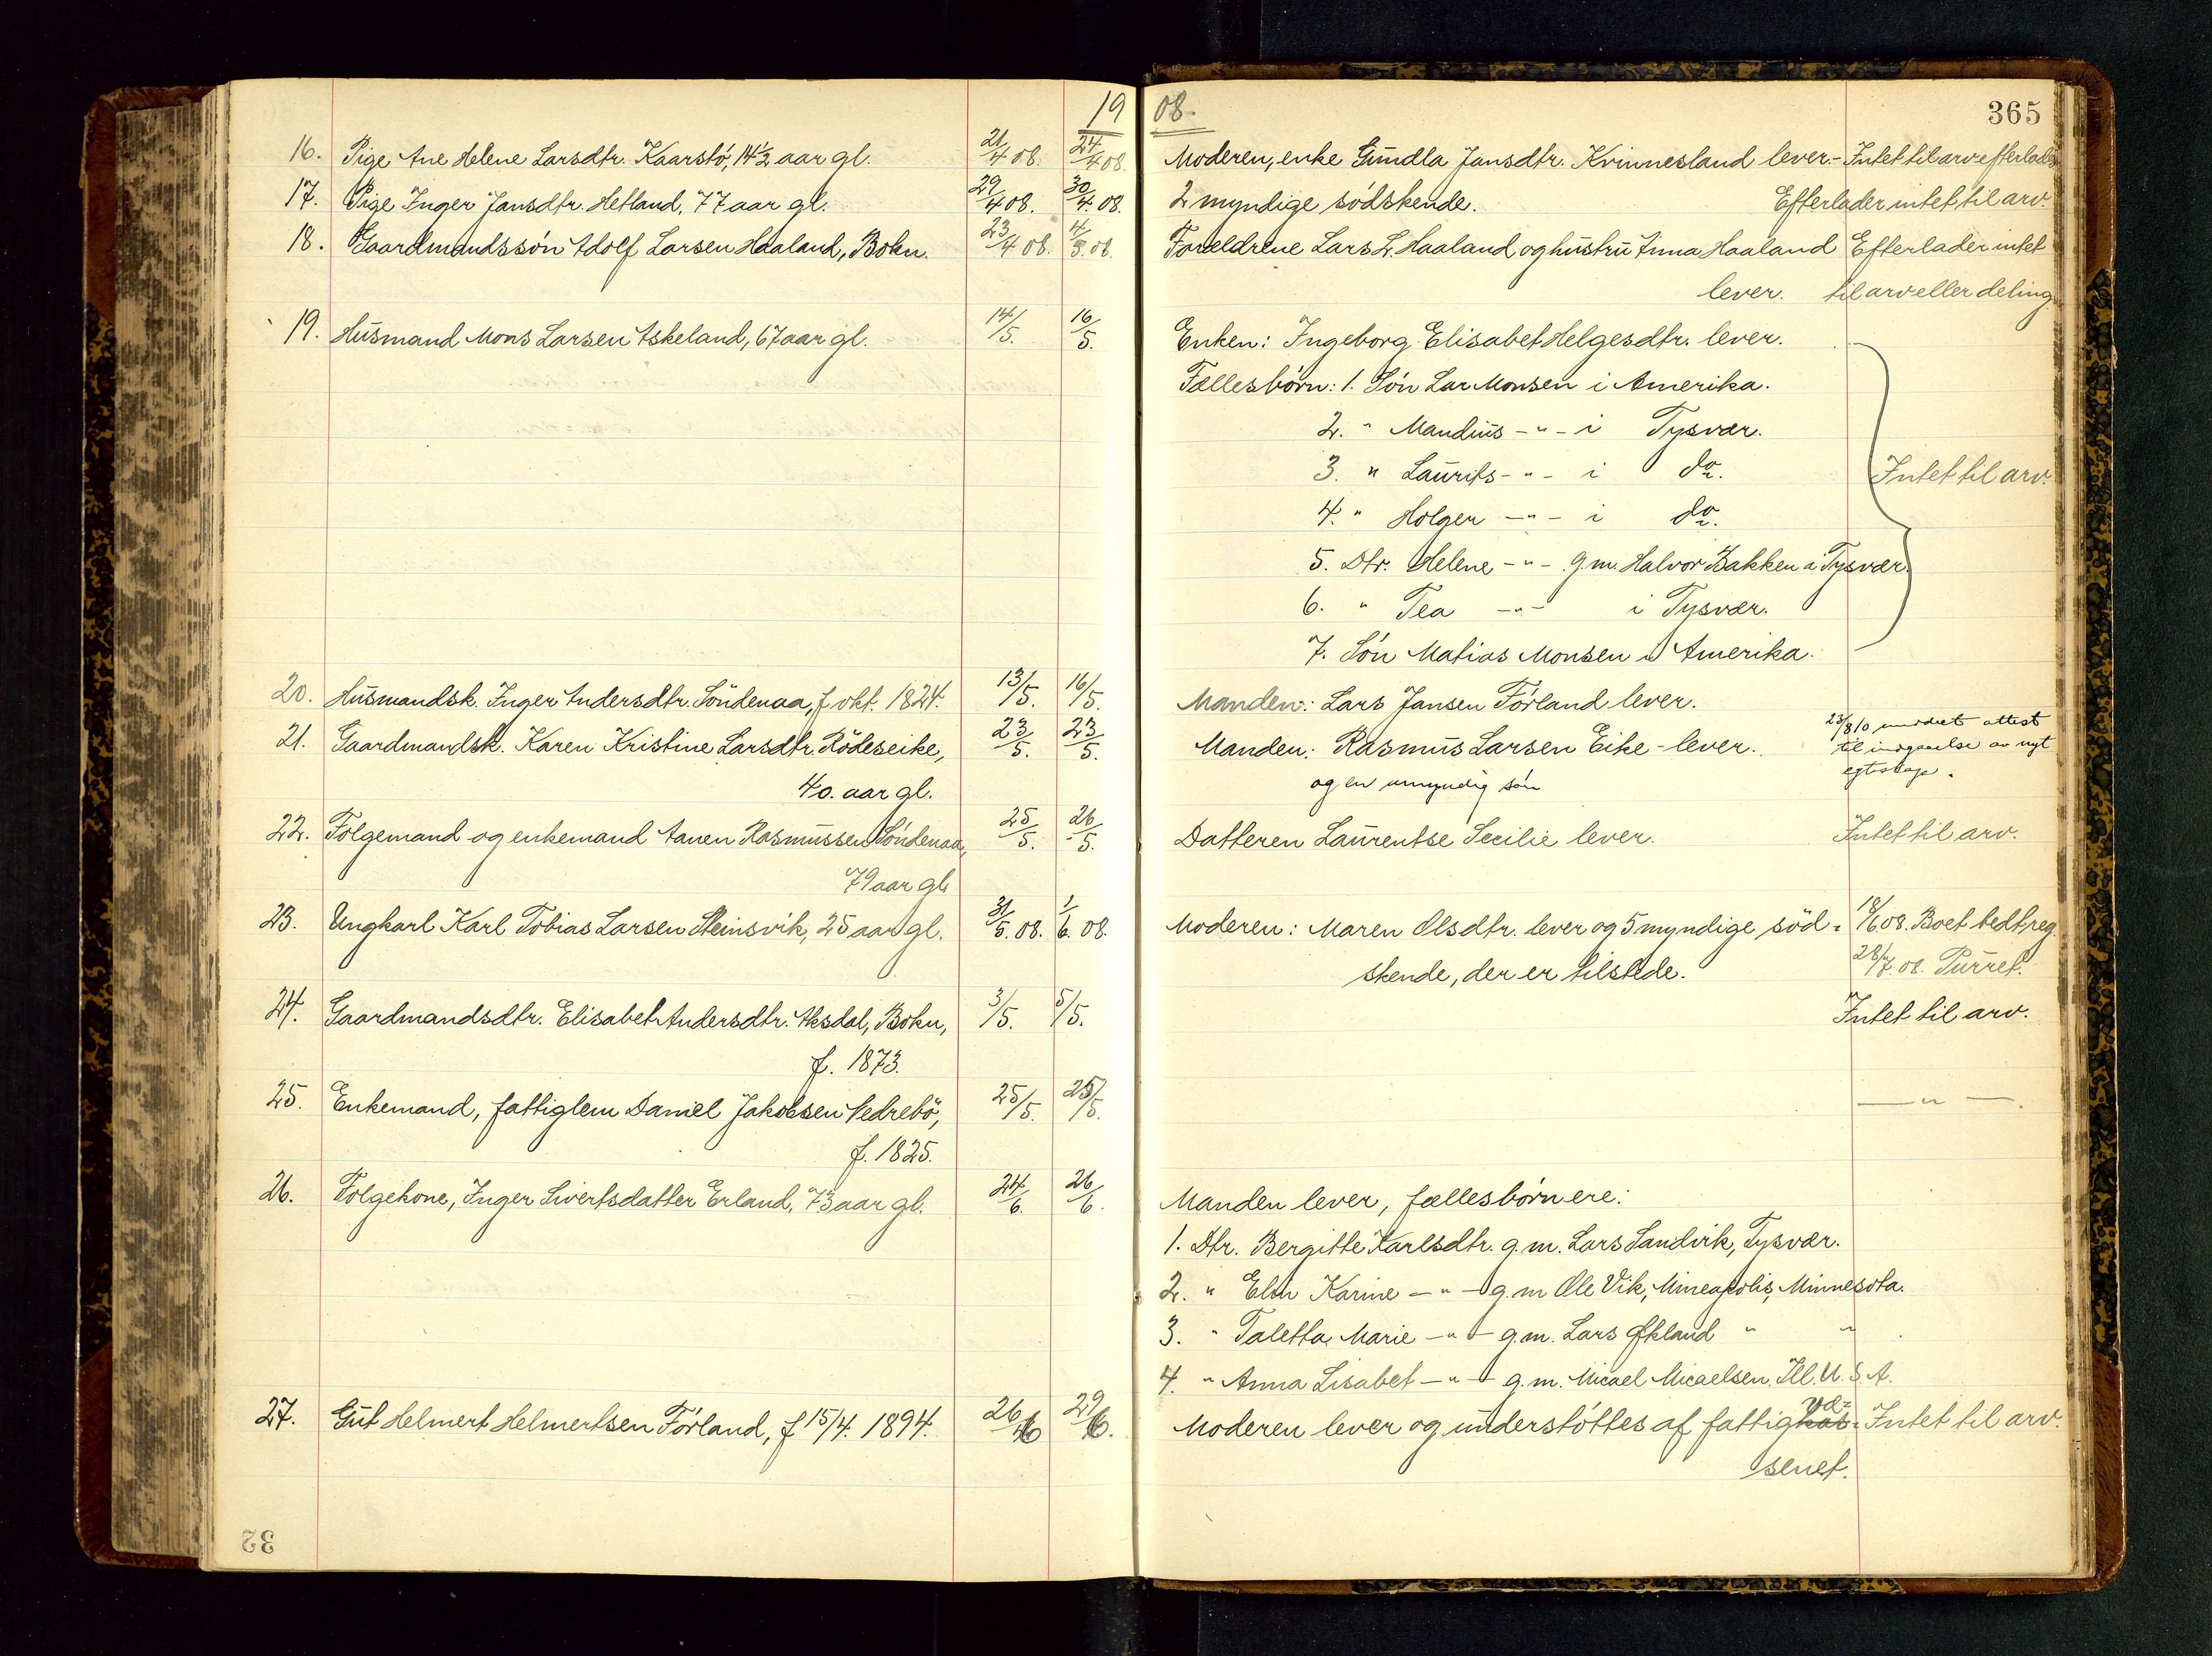 19 08.
365
16. Pige Ane Helene Larsdtr. Kaarstö, 14½ aar gl. 21/4 08. 24/4 08. Moderen, enke Gundla Jansdtr. Kvinnesland lever. - Intet til arv efterlades
17. Pige Inger Jansdtr. Hetland, 77 aar gl. 29/4 08. 30/4. 08. 2 myndige södskende. Efterlader intet til arv.
18. Gaardmandssön Adolf Larsen Haaland, Bokn. 23/4 08. 4/5. 08. Foreldrene Lars L. Haaland og hustru Anna Haaland Efterlader intet
lever. til arv eller deling.
19. Husmand Mons Larsen Askeland, 67 aar gl. 14/5. 16/5. Enken: Ingeborg Elisabet Helgesdtr. lever.
Fællesbörn: 1. Sön Lar Monsen i Amerika.
2. " Mandius - " - i Tysvær.
3. " Laurits - " - i do.
Intet til arv.
4. " Holger - " - i do.
5. Dtr. Helene - " - g. m. Halvor Bakken i Tysvær.
6. " Tea - " - i Tysvær.
7. Sön Matias Monsen i Amerika.
20. Husmandsk. Inger Andersdtr. Söndenaa, f okt. 1824. 13/5. 16/5. Manden: Lars Jansen Förland lever.
21. Gaardmandsk. Karen Kristine Larsdtr. Rödeseike, 23/5. 23/5. Manden: Rasmus Larsen Eike - lever. 23/8 10 meddelt attest
til indgaaelse av nyt
40. aar gl. og en umyndig sön egteskap.
22. Folgemand og enkemand Aanen Rasmussen Söndenaa, 25/5. 26/5. Datteren Laurentse Secilie lever. Intet til arv.
79 aar gl.
23. Ungkarl Karl Tobias Larsen Steinsvik, 25 aar gl. 31/5. 08. 1/6. 08. Moderen: Maren Olsdtr. lever og 5 myndige söd= 18/6 08. Boet bedt reg.
skende, der er tilstede. 28/7. 08. Purret.
24. Gaardmandsdtr. Elisabet Andersdtr. Aksdal, Bokn, 3/5. 5/5. Intet til arv.
f. 1873.
25. Enkemand, fattiglem Daniel Jakobsen Nedrebö, 25/5. 25/5. — " —.
f. 1825.
26. Folgekone, Inger Sivertsdatter Erland, 73 aar gl. 24/6. 26/6. Manden lever, fællesbörn ere:
1. Dtr. Bergitte Karlsdtr. g. m. Lars Sandvik, Tysvær.
2. " Elen Karine — " — g. m Ole Vik, Mineapolis, Minnesota.
3. " Taletta Marie — " — g. m. Lars Økland " "
4. " Anna Lisabet — " — g. m. Micael Micaelsen, Ill. U. S. A.
27. Gut Helmert Helmertsen Förland, f 15/4. 1894. 26/6 29/6. Moderen lever og understöttes af fattigkas væ= Intet til arv.
senet.
32